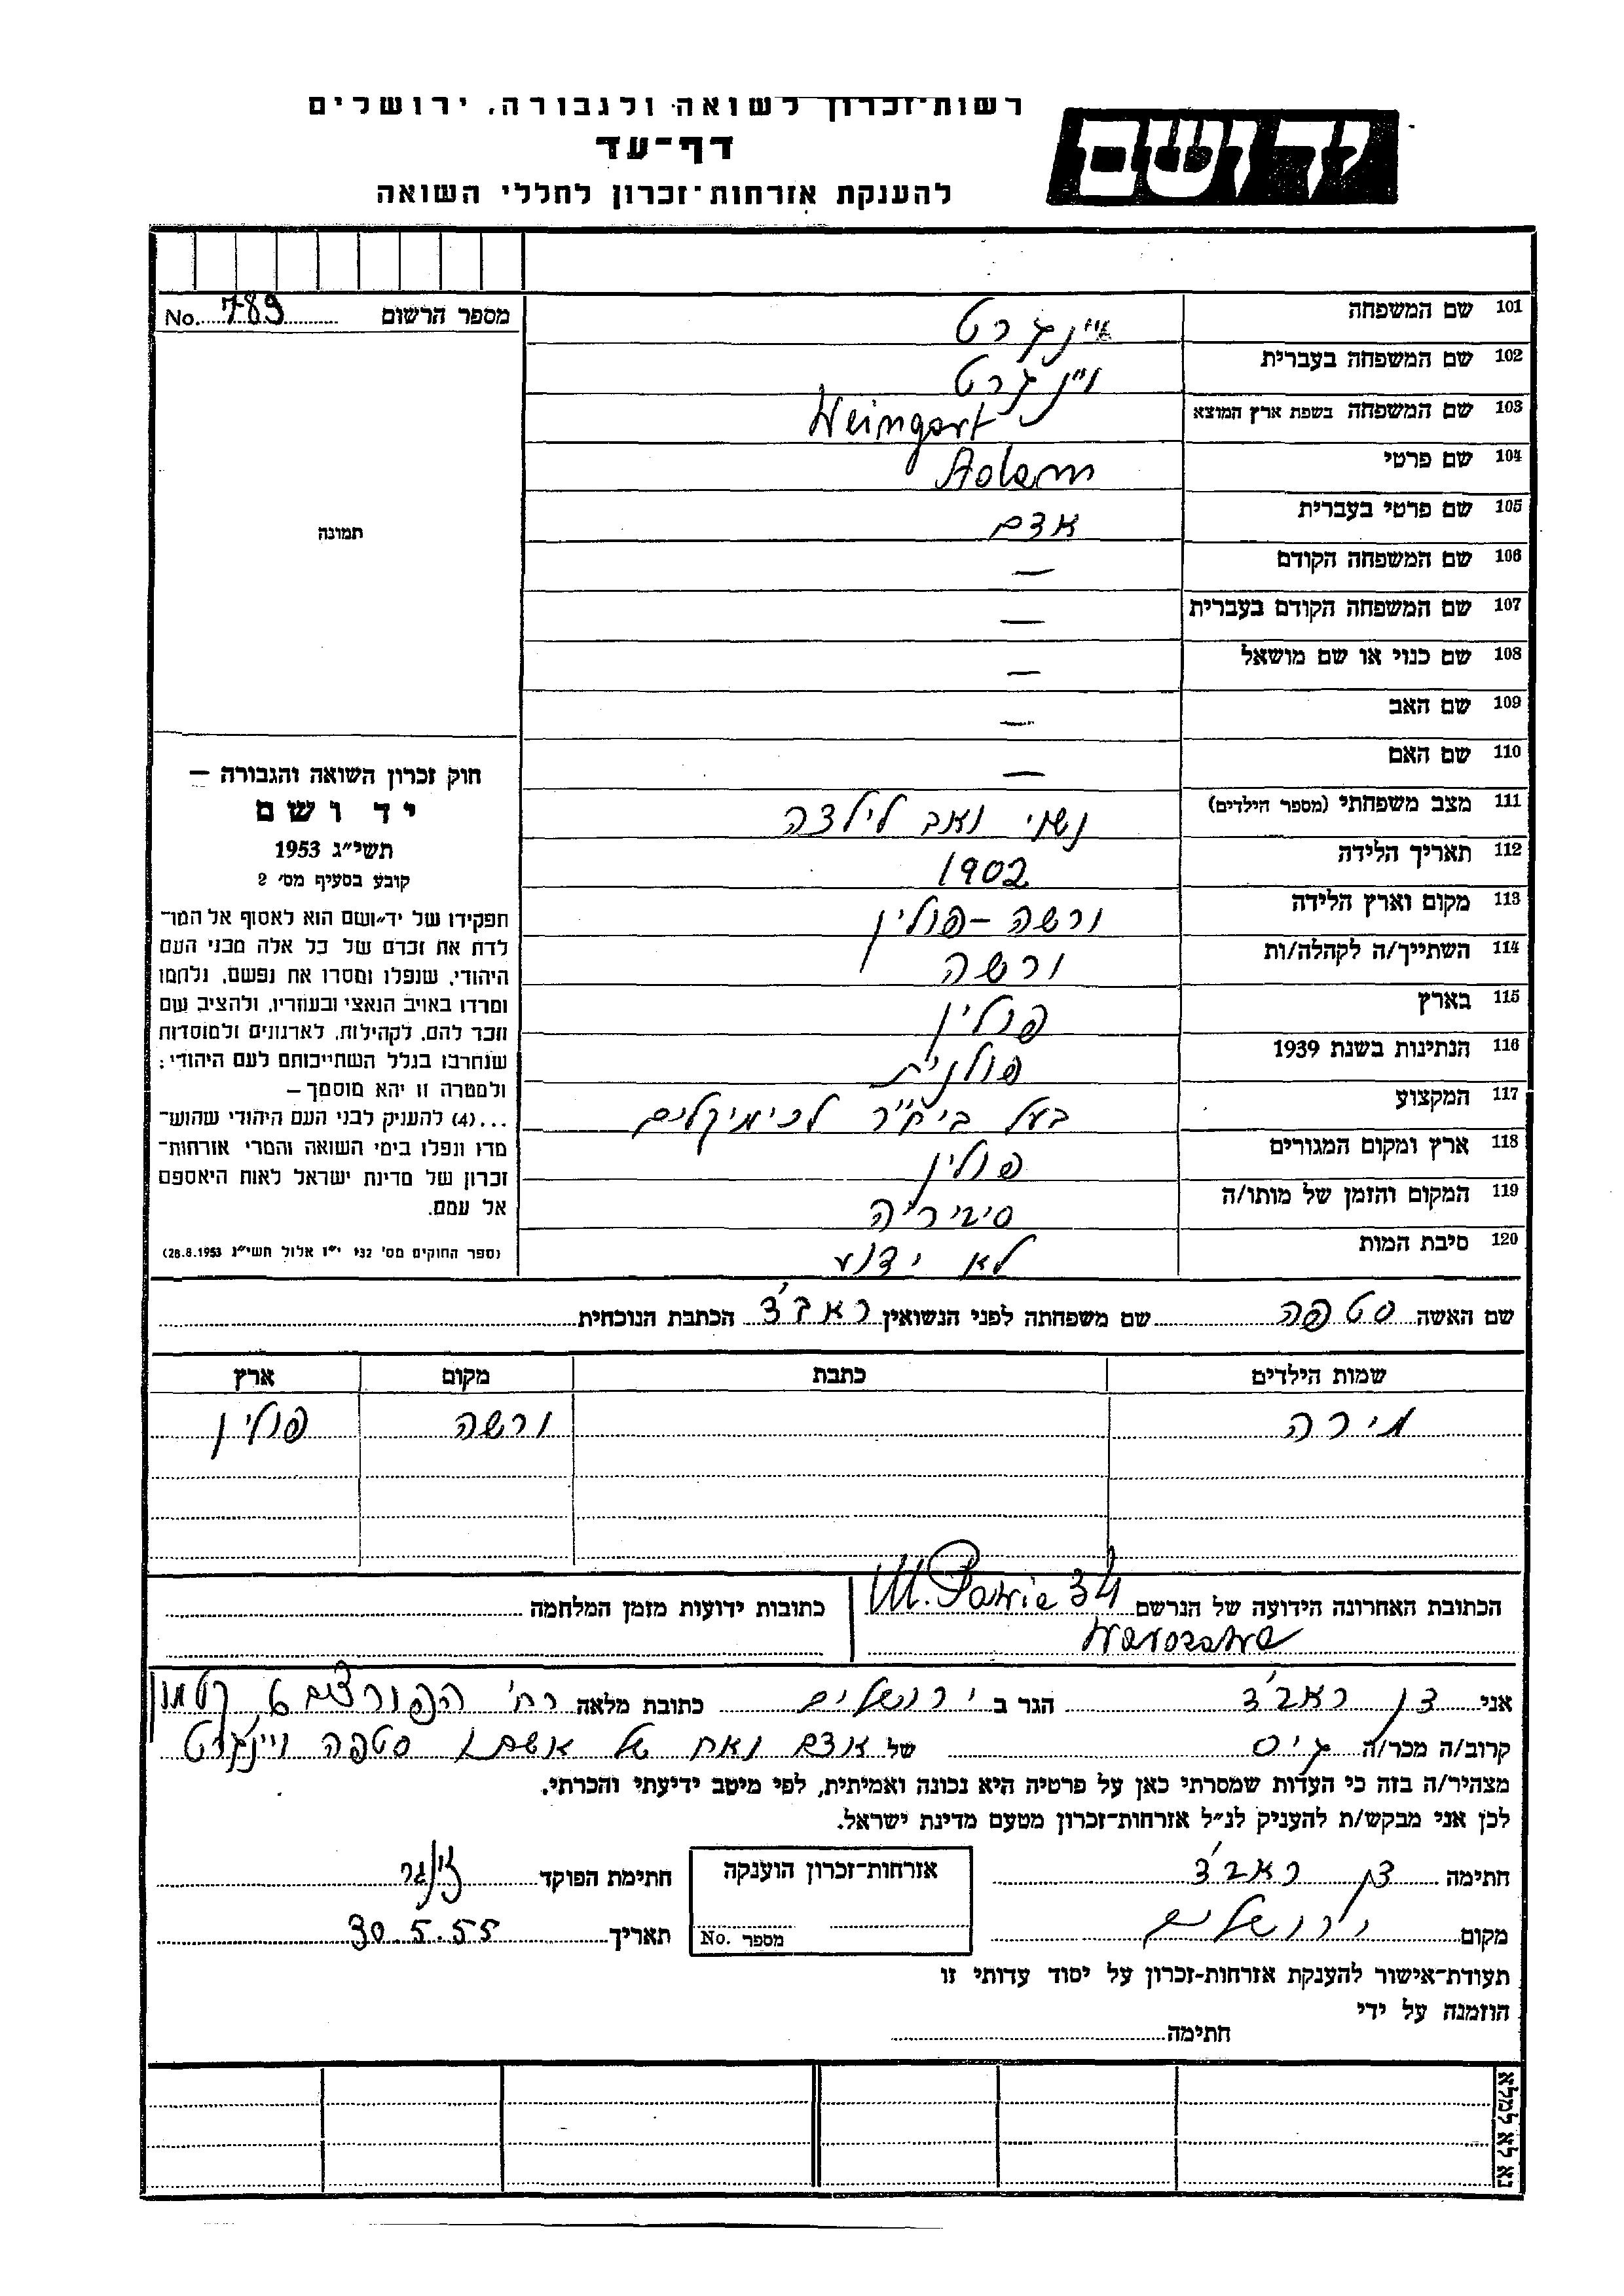 יד ושם
רשות־זכרון לשואה ולגבורה, ירושלים
דף־עד
להענקת אזרחות־זכרון לחללי השואה
מספר הרשום No. 789
תמונה
חוק זכרון השואה והגבורה –
יד ושם
תשי״ג 1953
קובע בסעיף מס׳ 2
תפקידו של יד־ושם הוא לאסוף אל המו־
לדת את זכרם של כל אלה מבני העם
היהודי, שנפלו ומסרו את נפשם, נלחמו
ומרדו באויב הנאצי ובעוזריו, ולהציב שם
וזכר להם, לקהילות, לארגונים ולמוסדות
שנחרבו בגלל השתייכותם לעם היהודי;
ולמטרה זו יהא מוסמך –
...(4) להעניק לבני העם היהודי שהוש־
מדו ונפלו בימי השואה והמרי אזרחות־
זכרון של מדינת ישראל לאות היאספם
אל עמם.
(ספר החוקים מס׳ 132 י״ז אלול תשי״ג 28.8.1953)
101 שם המשפחה ויינגרט
102 שם המשפחה בעברית ויינגרט
103 שם המשפחה בשפת ארץ המוצא Weingart
104 שם פרטי Adam
105 שם פרטי בעברית אדם
106 שם המשפחה הקודם –
107 שם המשפחה הקודם בעברית –
108 שם כנוי או שם מושאל –
109 שם האב –
110 שם האם –
111 מצב משפחתי (מספר הילדים) נשוי ואב לילדה
112 תאריך הלידה 1902
113 מקום וארץ הלידה ורשה – פולין
114 השתייך/ה לקהלה/ות ורשה
115 בארץ פולין
116 הנתינות בשנת 1939 פולנית
117 המקצוע בעל ביח״ר לכימיקלים
118 ארץ ומקום המגורים פולין
119 המקום והזמן של מותו/ה סיביריה
120 סיבת המות לא ידוע
שם האשה סטפה שם משפחתה לפני הנשואין ראב׳צ הכתבת הנוכחית
שמות הילדים כתבת מקום ארץ
מירה ורשה פולין
הכתובת האחרונה הידועה של הנרשם 34 כתובות ידועות מזמן המלחמה
אני דן ראב׳צ הגר ב ירושלים כתובת מלאה רח׳ הפורצים 6 קטמון
קרוב/ה מכר/ה גיס של אדם ואח של אשתו סטפה ויינגרט
מצהיר/ה בזה כי העדות שמסרתי כאן על פרטיה היא נכונה ואמיתית, לפי מיטב ידיעתי והכרתי.
לכן אני מבקש/ת להעניק לנ״ל אזרחות־זכרון מטעם מדינת ישראל.
חתימה דן ראב׳צ אזרחות־זכרון הוענקה חתימת הפוקד
מקום ירושלים מספר No. תאריך 30.5.55
תעודת־אישור להענקת אזרחות־זכרון על יסוד עדותי זו
הוזמנה על ידי
חתימה
נא לא למלא